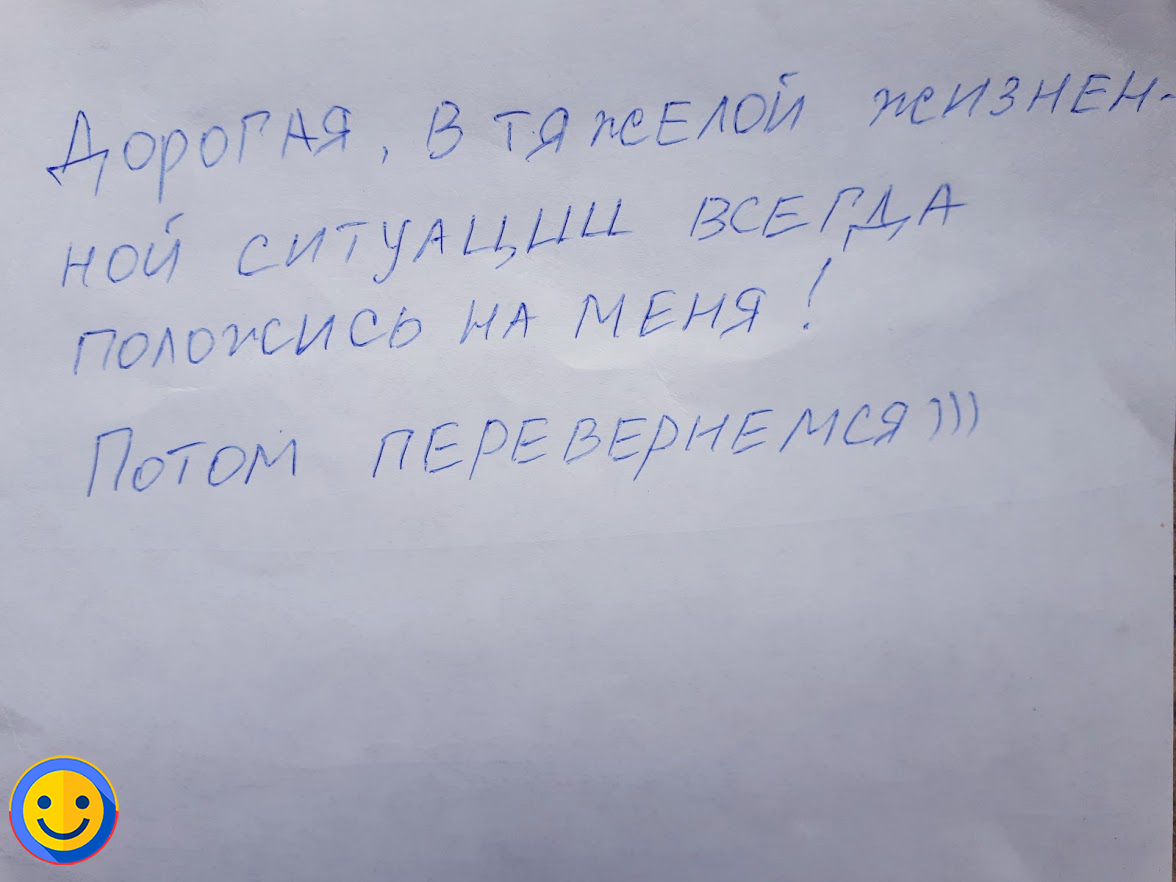 Дорогая, в тяжелой жизнен-
ной ситуации всегда
положись на меня!
Потом перевернемся)))